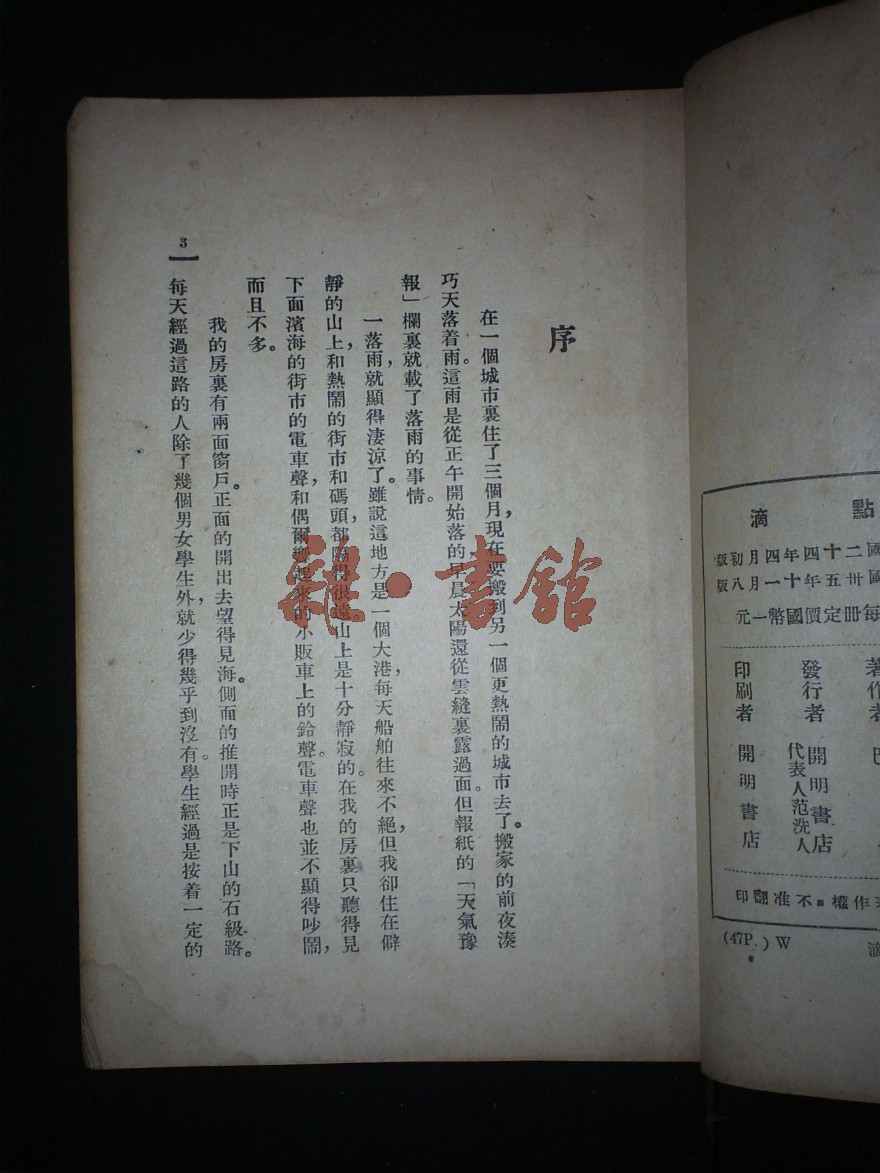 點滴
國二十四年四月初版
國卅五年十一月八版
每冊定價國幣一元
著作者 巴
發行者 開明書店
代表人范洗人
印刷者 開明書店
作權・不准翻印
(47P.) W
滴
序
在一個城市裏住了三個月，現在要搬到另一個更熱鬧的城市去了。搬家的前夜湊
巧天落着雨。這雨是從正午開始落的，早晨太陽還從雲縫裏露過面。但報紙的「天氣豫
報」欄裏就載了落雨的事情。
一落雨，就顯得淒涼了。雖說這地方是一個大港，每天船舶往來不絕，但我卻住在僻
靜的山上，和熱鬧的街市和碼頭都隔得很遠。山上是十分靜寂的。在我的房裏只聽得見
下面濱海的街市的電車聲，和偶爾響起來的小販車上的鈴聲。電車聲也並不顯得吵鬧，
而且不多。
我的房裏有兩面窗戶。正面的開出去望得見海。側面的推開時正是下山的石級路。
每天經過這路的人除了幾個男女學生外，就少得幾乎到沒有。學生經過是按着一定的
3
雜・書館